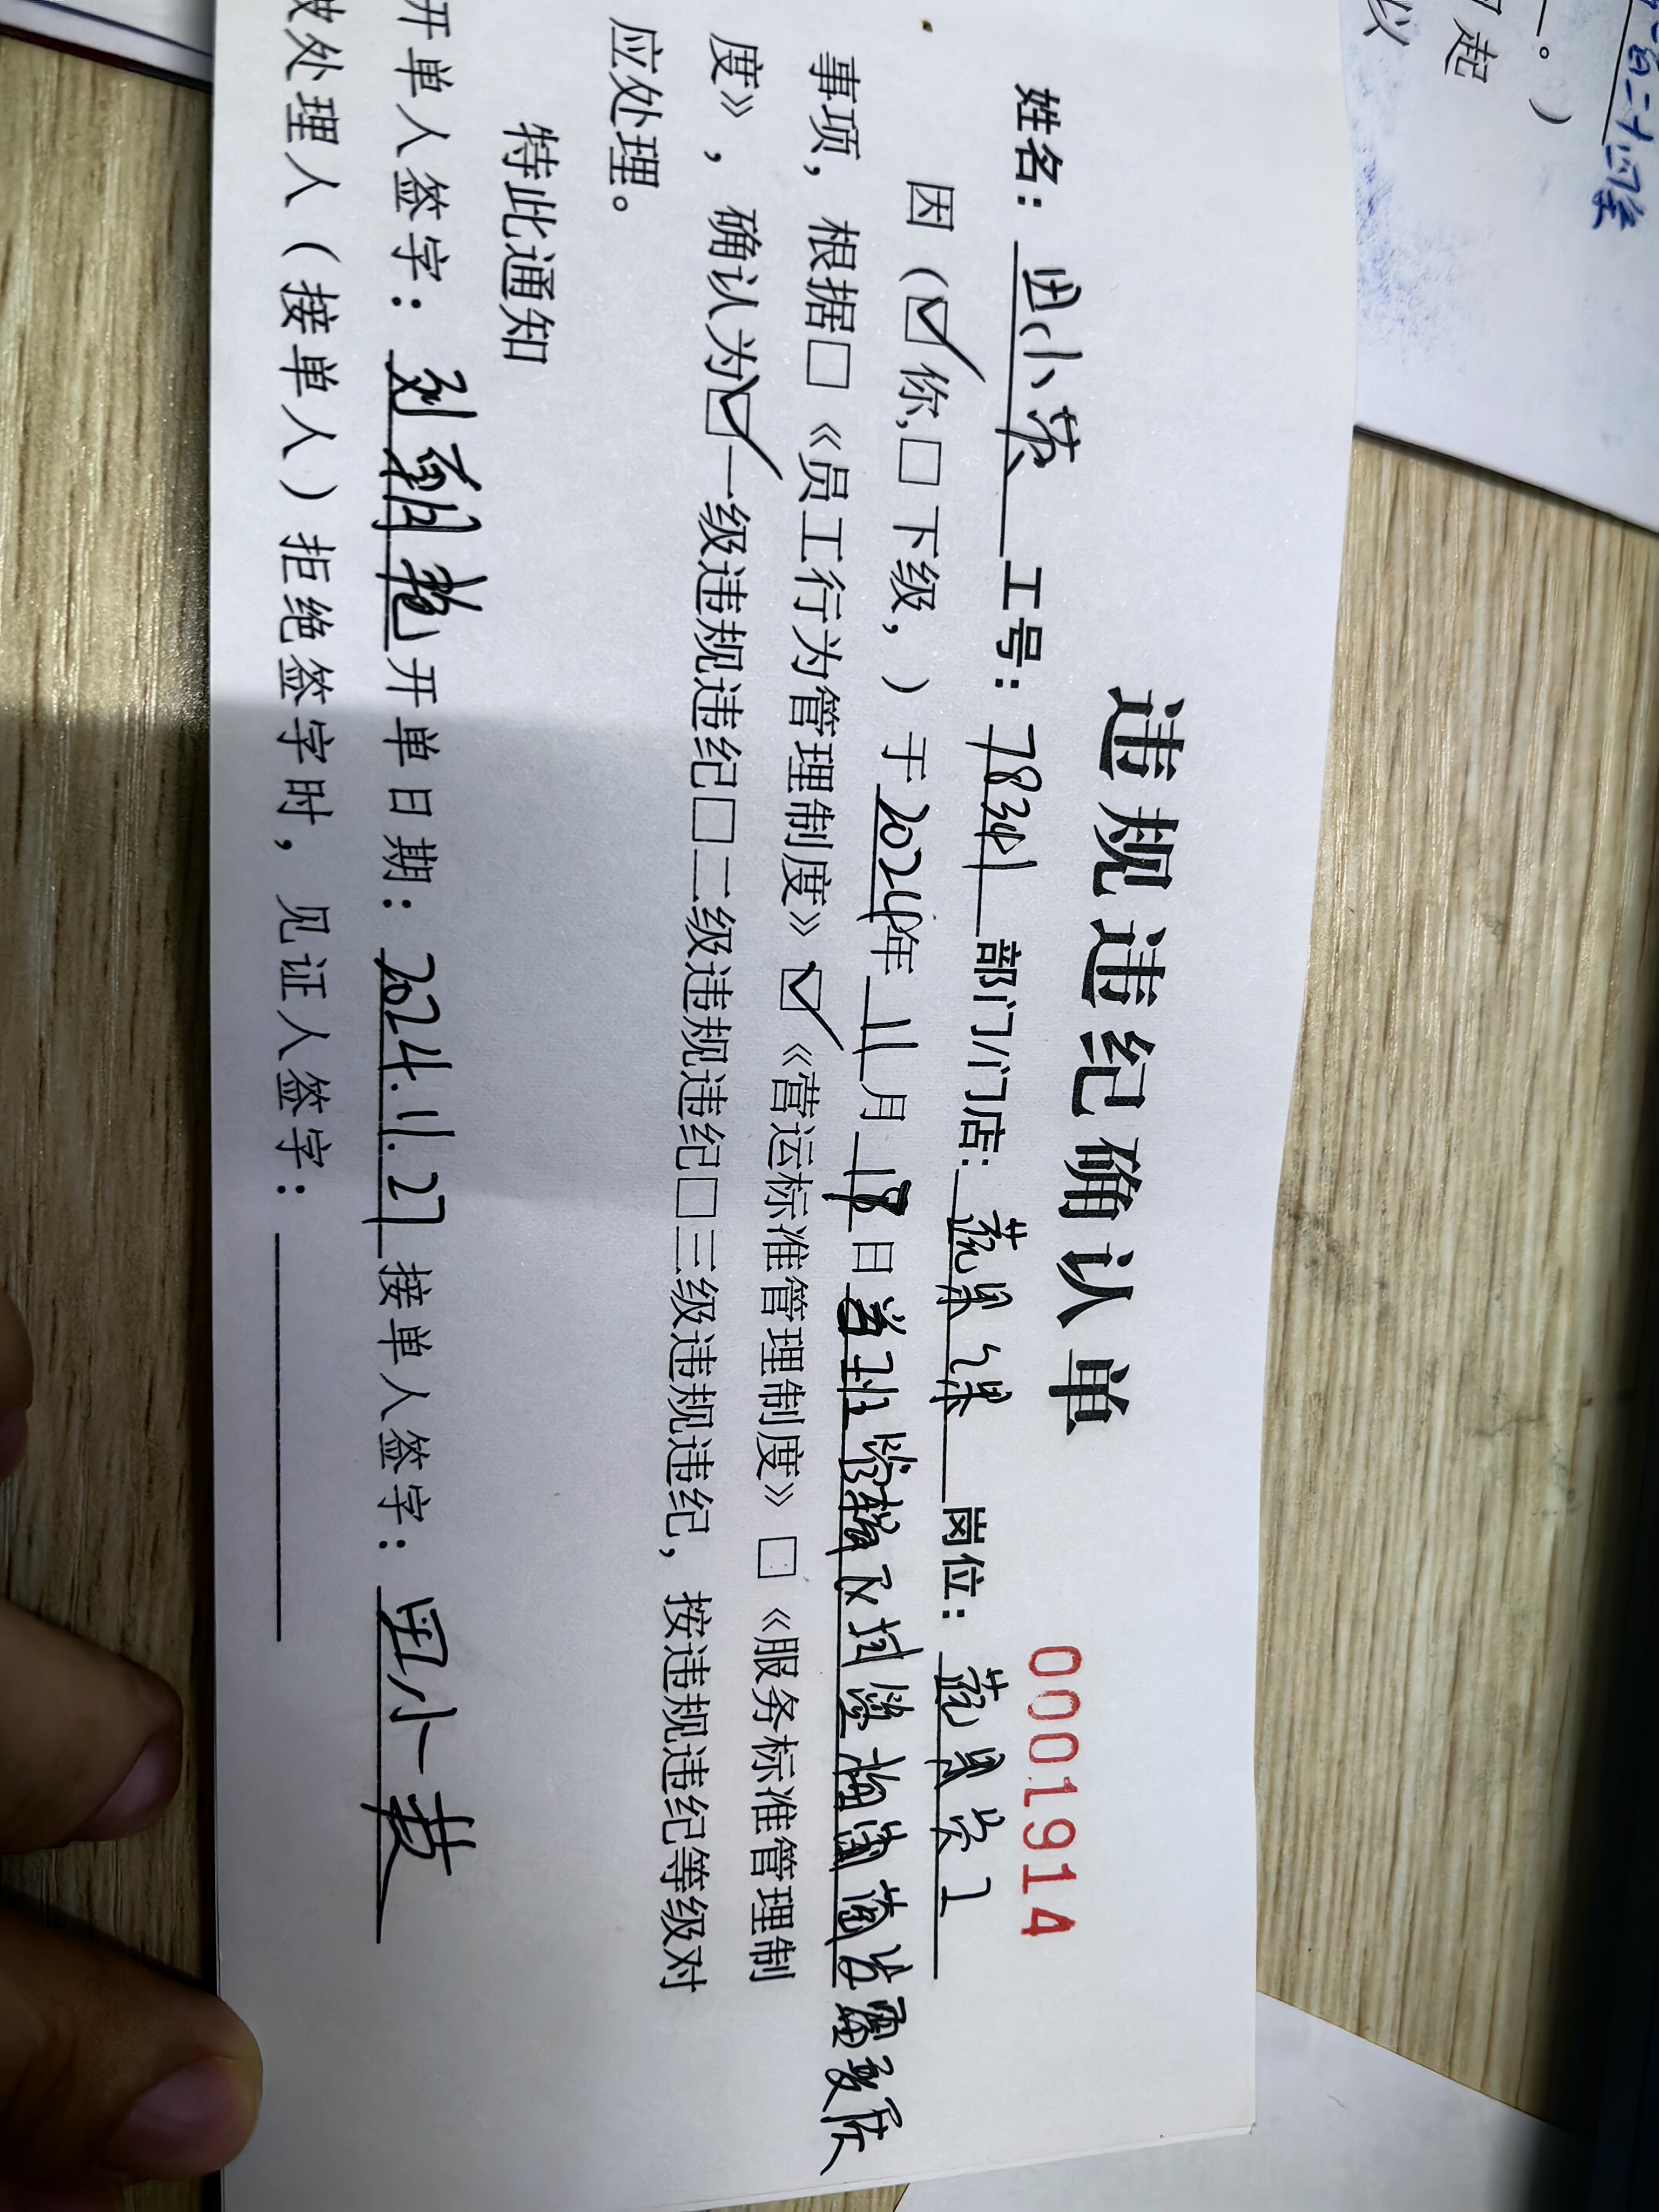 违规违纪确认单
0001914
姓名：田小芳 工号：78341 部门/门店：蔬果课 岗位：蔬果员工
因（☑你,☐下级，）于2024年11月18日当班 检核
事项，根据☐《员工行为管理制度》☑《营运标准管理制度》☐《服务标准管理制
度》，确认为☑一级违规违纪☐二级违规违纪☐三级违规违纪，按违规违纪等级对
应处理。
特此通知
开单人签字： 开单日期：2024.11.27 接单人签字：田小芳
被处理人（接单人）拒绝签字时，见证人签字：